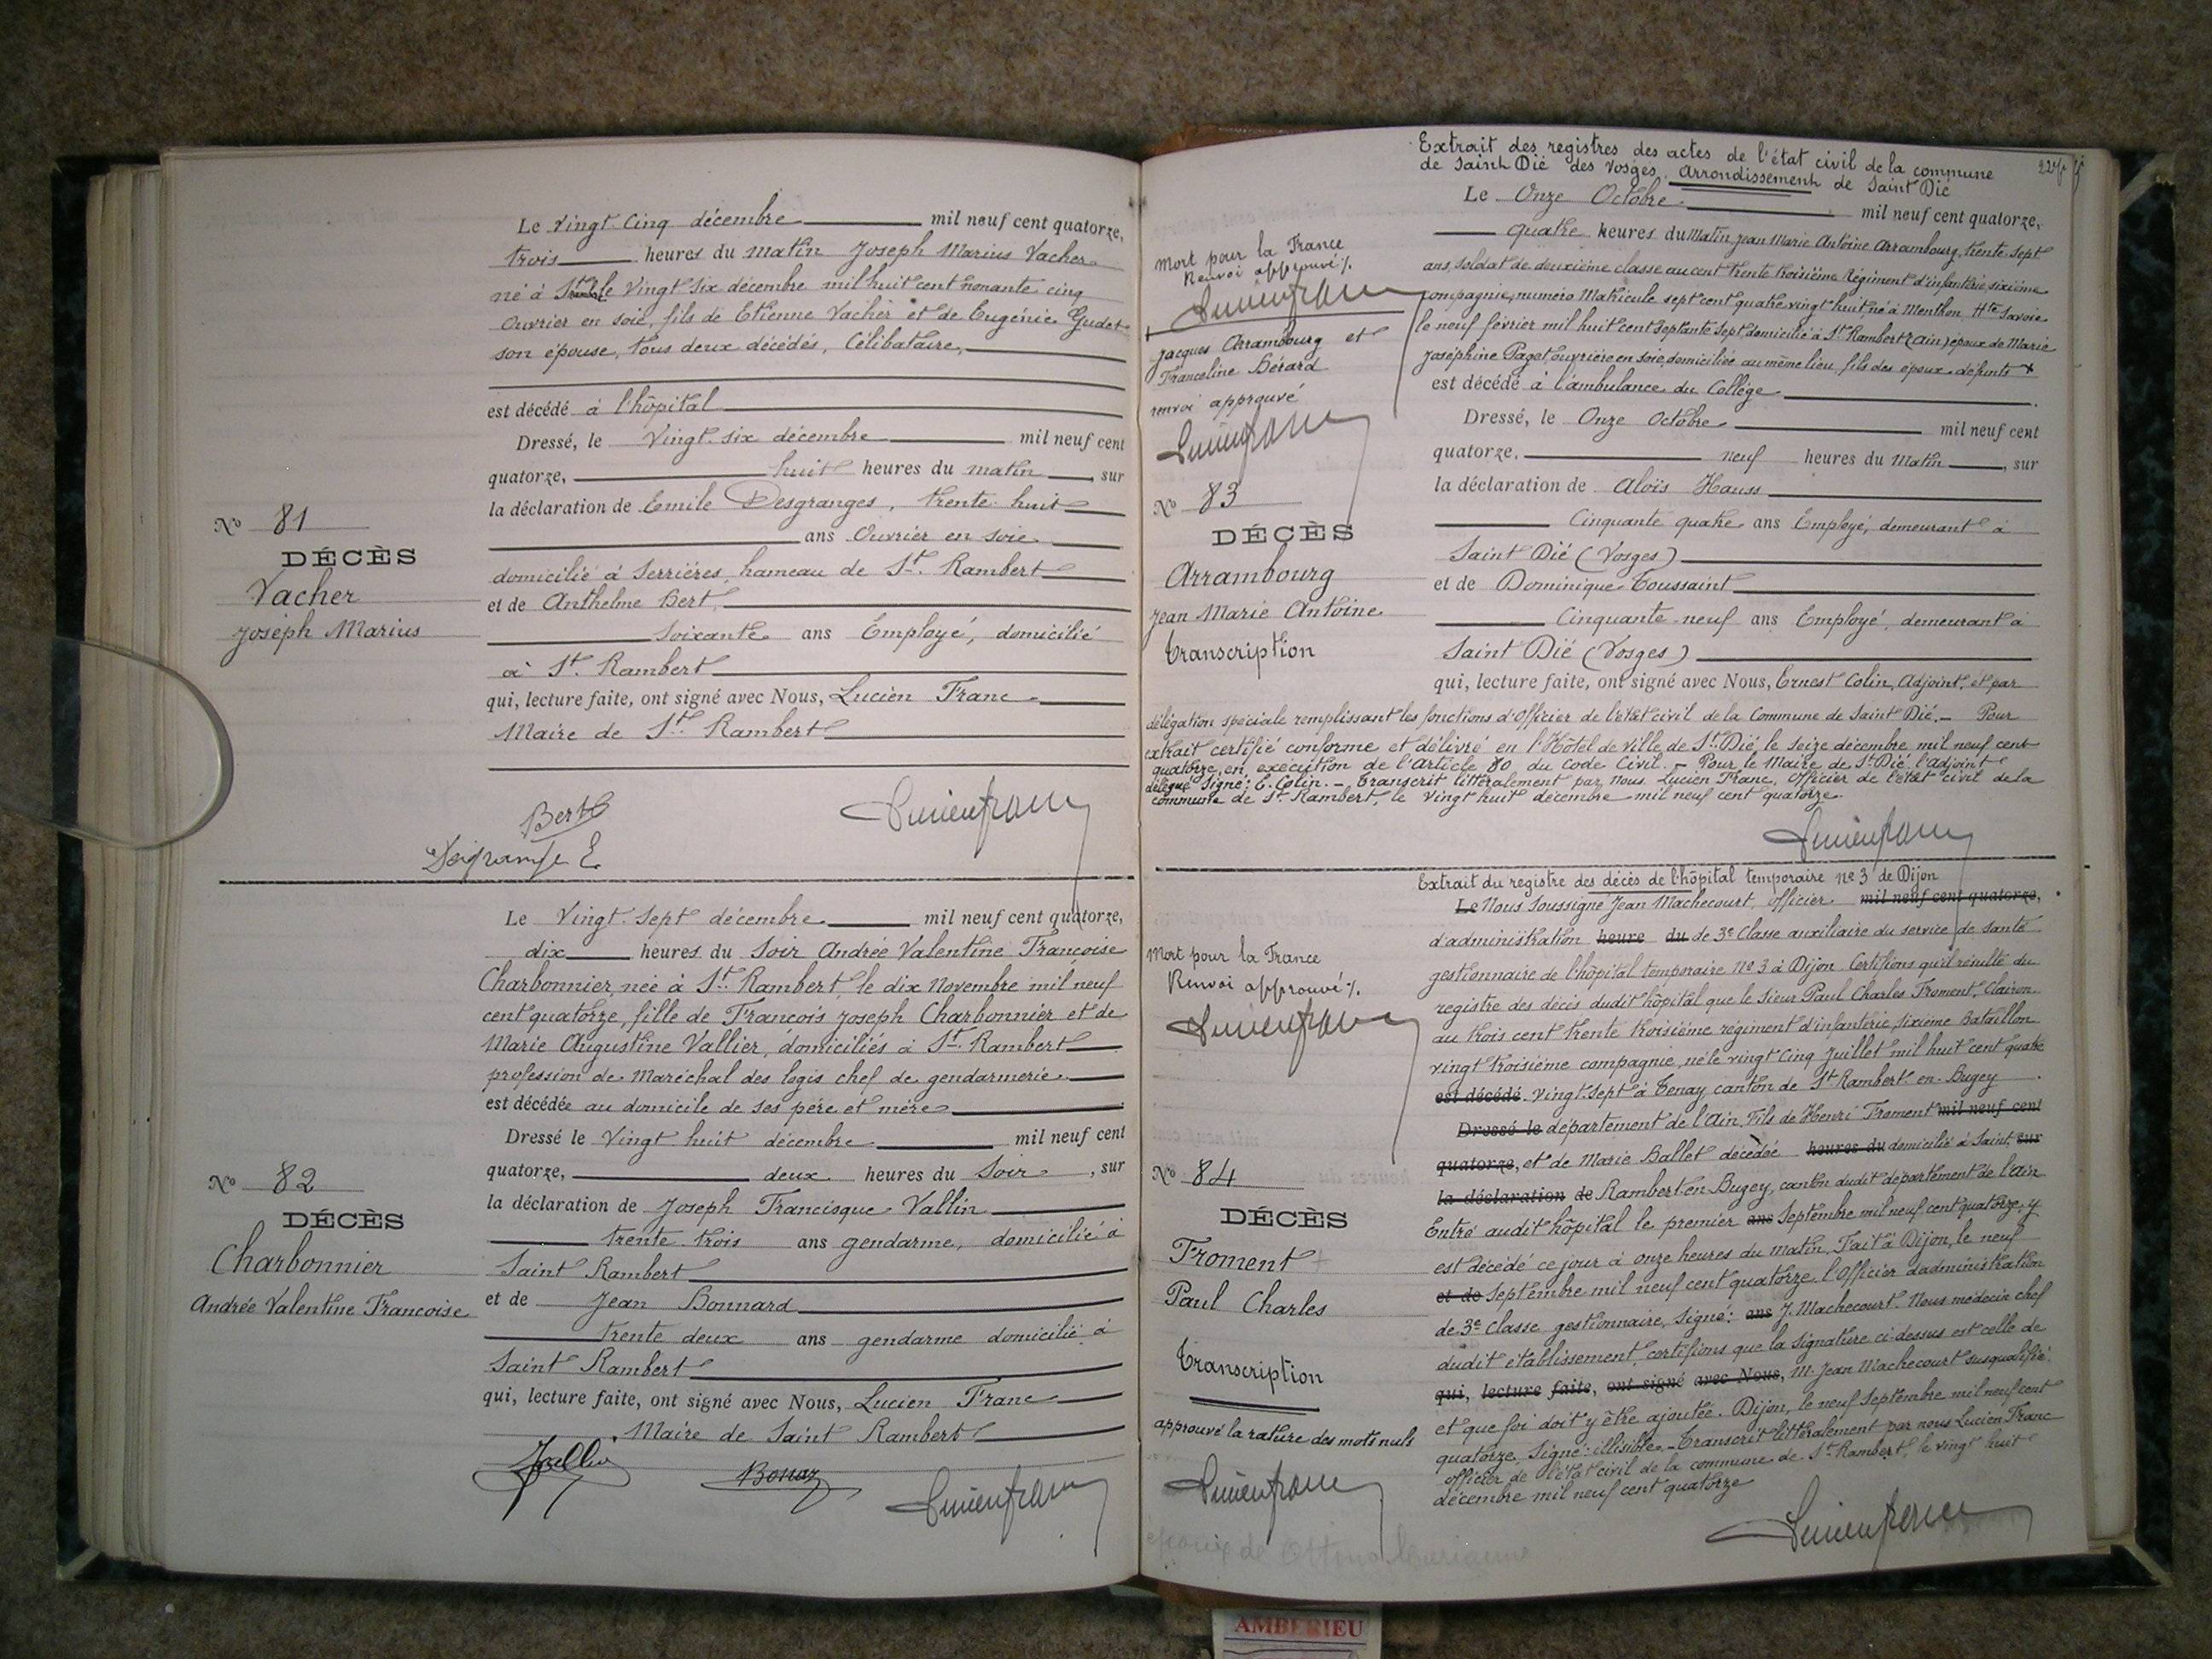 Le vingt cinq décembre mil neuf cent quatorze,
trois heures du matin Joseph Marius Vacher
né à St Rambert le vingt six décembre mil huit cent nonante cinq
Ouvrier en soie, fils de Etienne Vacher et de Eugénie Gudet
son épouse, tous deux décédés, Célibataire,
est décédé à l'hôpital
Dressé, le vingt six décembre mil neuf cent
quatorze, huit heures du matin, sur
la déclaration de Emile Desgranges, trente huit
ans Ouvrier en soie
domicilié à Serrières, hameau de St. Rambert
et de Anthelme Bert,
soixante ans Employé, domicilié
à St. Rambert
qui, lecture faite, ont signé avec Nous, Lucien Franc
Maire de St. Rambert
No 81
DÉCÈS
Vacher
Joseph Marius
Bert
Desgrange E
Lucien franc
Le vingt sept décembre mil neuf cent quatorze,
dix heures du soir Andrée Valentine Françoise
Charbonnier, née à St. Rambert, le dix Novembre mil neuf
cent quatorze, fille de François Joseph Charbonnier et de
Marie Augustine Vallier, domiciliés à St. Rambert
profession de Maréchal des logis chef de gendarmerie
est décédée au domicile de ses père et mère
Dressé le vingt huit décembre mil neuf cent
quatorze, deux heures du soir, sur
la déclaration de Joseph Francisque Vallin
trente trois ans gendarme, domicilié à
Saint Rambert
et de Jean Bonnard
trente deux ans gendarme domicilié à
Saint Rambert
qui, lecture faite, ont signé avec Nous, Lucien Franc
Maire de Saint Rambert
No 82
DÉCÈS
Charbonnier
Andrée Valentine Francoise
Lucien franc
Extrait des registres des actes de l'état civil de la commune
de Saint Dié des Vosges, Arrondissement de Saint Dié
Le Onze Octobre mil neuf cent quatorze,
quatre heures du Matin, Jean Marie Antoine Arrambourg, trente sept
ans, soldat de deuxième classe au cent trente troisième Régiment d'infanterie, sixième
compagnie, numéro Matricule sept cent quatre vingt huit, né à Menthon, Hte Savoie
le neuf février mil huit cent septante sept, domicilié à St Rambert (Ain) époux de Marie
Joséphine Paget ouvrière en soie, domiciliée au même lieu, fils des époux défunts x
est décédé à l'ambulance du Collège
Dressé, le Onze Octobre mil neuf cent
quatorze, neuf heures du Matin, sur
la déclaration de Aloïs Hauss
Cinquante quatre ans Employé, demeurant à
Saint Dié (Vosges)
et de Dominique Toussaint
Cinquante neuf ans Employé, demeurant à
Saint Dié (Vosges)
qui, lecture faite, ont signé avec Nous, Ernest Colin, Adjoint, et par
délégation spéciale remplissant les fonctions d'Officier de l'état civil de la Commune de Saint Dié. - Pour
extrait certifié conforme et délivré en l'Hôtel de Ville de St. Dié, le seize décembre mil neuf cent
quatorze, en exécution de l'Article 80 du Code Civil. - Pour le Maire de St Dié l'adjoint
délégué Signé: E. Colin. - Transcrit littéralement par Nous, Lucien Franc, Officier de l'état civil de la
commune de St. Rambert, le vingt huit décembre mil neuf cent quatorze.
Lucien franc
Mort pour la France
Renvoi approuvé %
Lucien franc
Jacques Arrambourg et
Franceline Bérard
renvoi approuvé
Lucien franc
No 83
DÉCÈS
Arrambourg
Jean Marie Antoine
Transcription
Extrait du registre des décès de l'hôpital temporaire no 3 de Dijon
Le Nous Soussigné Jean Machecourt, officier mil neuf cent quatorze,
d'administration heure du de 3e Classe auxiliaire du service de santé
gestionnaire de l'hôpital temporaire No 3 à Dijon. Certifions qu'il résulte du
registre des décès dudit hôpital que le sieur Paul Charles Froment, Clairon
au trois cent trente troisième régiment d'infanterie, sixième Bataillon
vingt troisième compagnie, né le vingt cinq Juillet mil huit cent quatre
est décédé vingt sept à Tenay, canton de St Rambert en Bugey
Dressé le département de l'Ain, fils de Henri Froment mil neuf cent
quatorze, et de Marie Ballet décédée heures du domicilié à Saint, sur
la déclaration de Rambert en Bugey, canton dudit département de l'Ain
Entré audit hôpital le premier ans Septembre mil neuf cent quatorze, y
est décédé ce jour à onze heures du matin. Fait à Dijon, le neuf
et de Septembre mil neuf cent quatorze. l'Officier d'administration
de 3e Classe gestionnaire, Signé: ans J. Machecourt. Nous médecin chef
dudit établissement, certifions que la signature ci-dessus est celle de
qui, lecture faite, ont signé avec Nous, M. Jean Machecourt susqualifié
et que foi doit y être ajoutée. Dijon, le neuf Septembre mil neuf cent
quatorze, Signé: illisible. - Transcrit littéralement par nous Lucien Franc
officier de l'état civil de la commune de St Rambert le vingt huit
décembre mil neuf cent quatorze
Lucien franc
Mort pour la France
Renvoi approuvé %
Lucien franc
No 84
DÉCÈS
Froment
Paul Charles
Transcription
approuvé la rature des mots nuls
Lucien franc
époux de
AMBERIEU